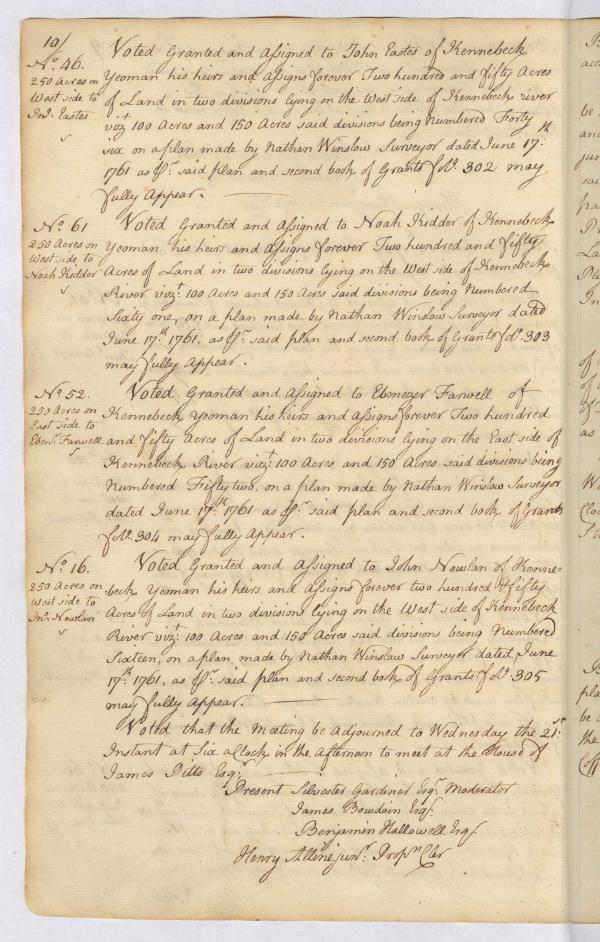 10/
No. 46.
250 Acres on
West side to
Jno. Eastes
Voted Granted and Assigned to John Eastes of Kennebeck
Yeoman his heirs and Assigns forever Two hundred and fifty Acres
of Land in two divisions lying on the West side of Kennebeck river
vizt 100 Acres and 150 Acres said divisions being Numbered Forty
six on a plan made by Nathan Winslow Surveyor dated June 17th
1761 as pr. said plan and second book of Grants folo. 302 may
fully Appear.
No. 61
250 Acres on
West side to
Noah Kidder
Voted Granted and Assigned to Noah Kidder of Kennebeck
Yeoman his heirs and Assigns forever Two hundred and fifty
Acres of Land in two divisions lying on the West side of Kennebeck
River vizt. 100 Acres and 150 Acres said divisions being Numbered
Sixty one, on a plan made by Nathan Winslow Surveyor dated
June 17th. 1761, as pr. said plan and second book of Grants folo. 303
may fully Appear.
No. 52.
250 Acres on
East side to
Ebenr. Farwell
Voted Granted and Assigned to Ebenezer Farwell of
Kennebeck Yeoman his heirs and Assigns forever Two hundred
and fifty Acres of Land in two divisions lying on the East side of
Kennebeck River vizt. 100 Acres and 150 Acres said divisions being
Numbered Fifty two, on a plan made by Nathan Winslow Surveyor
dated June 17th. 1761 as pr. said plan and second book of Grants
folo. 304 may fully Appear.
No. 16.
250 Acres on
West side to
Jno. Nowlan
Voted Granted and Assigned to John Nowlan of Kenne=
beck Yeoman his heirs and Assigns forever two hundred & fifty
Acres of Land in two divisions lying on the West side of Kennebeck
River vizt. 100 Acres and 150 Acres said divisions being Numbered
Sixteen, on a plan made by Nathan Winslow Surveyor dated June
17th. 1761, as pr. said plan and second book of Grants folo. 305
may fully Appear.
Voted that the Meeting be Adjourned to Wednesday the 21st.
Instant at Six aClock in the Afternoon to meet at the House of
James Pitts Esqr.
Present Silvester Gardiner Esqr. Moderator
James Bowdoin Esqr.
Benjamin Hallowell Esqr.
Henry Alline junr. Proprs. Cler